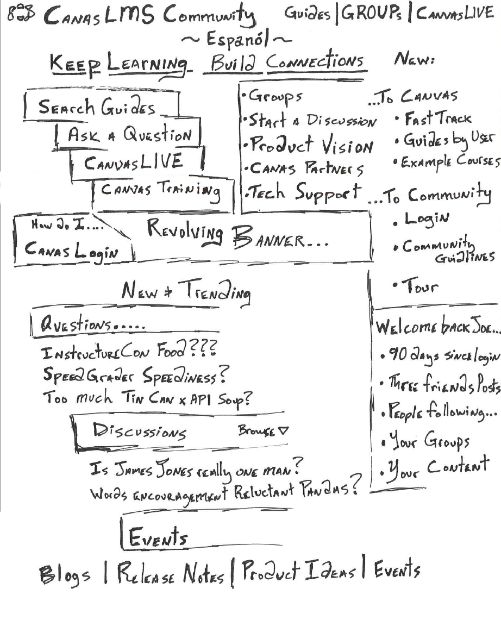 Canas LMS Community Guides | GROUPs | CanvasLIVE
~ Español ~
Keep Learning Build Connections New:
Search Guides
Ask a Question
CanvasLIVE
Canvas Training
• Groups
• Start a Discussion
• Product Vision
• Canas Partners
• Tech Support
...To Canvas
• Fast Track
• Guides by User
• Example Courses
...To Community
• Login
• Community Guidlines
• Tour
How do I....
Canas Login
Revolving Banner...
New + Trending
Questions.....
InstructureCon Food???
SpeedGrader Speediness?
Too much Tin Can x API Soup?
Discussions Browse ▽
Is James Jones really one man?
Words encouragement Reluctant Pandas?
Events
Welcome back Joe...
• 90 days since login
• Three friends Posts
• People following...
• Your Groups
• Your Content
Blogs | Release Notes | Product Ideas | Events